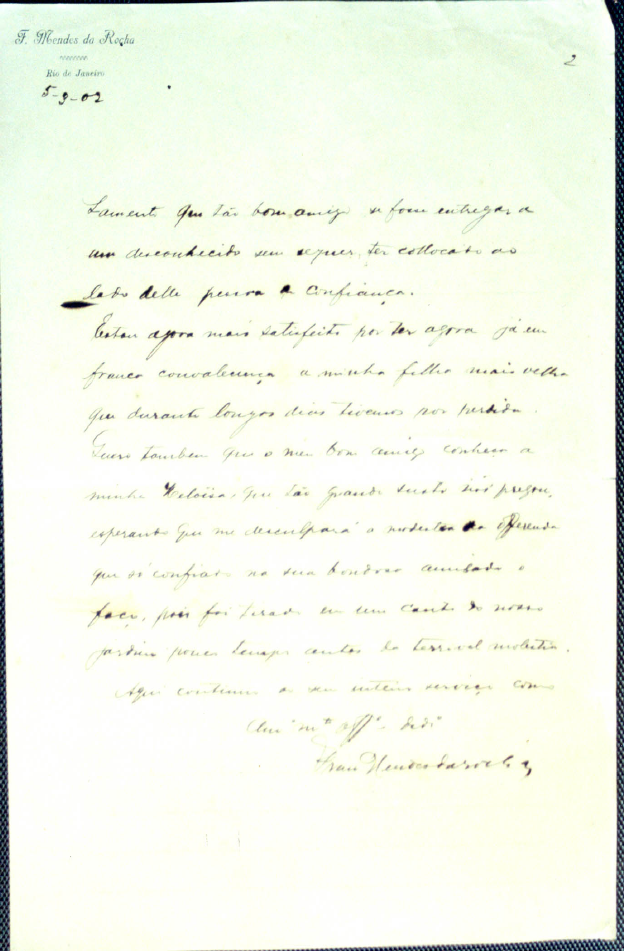 F. Mendes da Rocha
Rio de Janeiro
5-9-02
2
Lamento que tão bom amigo se fosse entregar a
um desconhecido sem sequer ter collocado ao
Lado delle pessoa de confiança.
Estou agora mais satisfeito por ter agora já em
franca convalecença a minha filha mais velha
que durante longos dias tivemos por perdida.
Quero tambem que o meu bom amigo conheça a
minha Heloïsa, que tão grande susto nos pregou,
esperando que me desculpará a modestia da offerenda
que só confiado na sua bondosa amizade o
faço, pois foi tirado em um canto do nosso
jardim pouco tempo antes da terrivel molestia.
Aqui continuo ao seu inteiro serviço como
Amº mtº affº
Fran Mendes da Rocha